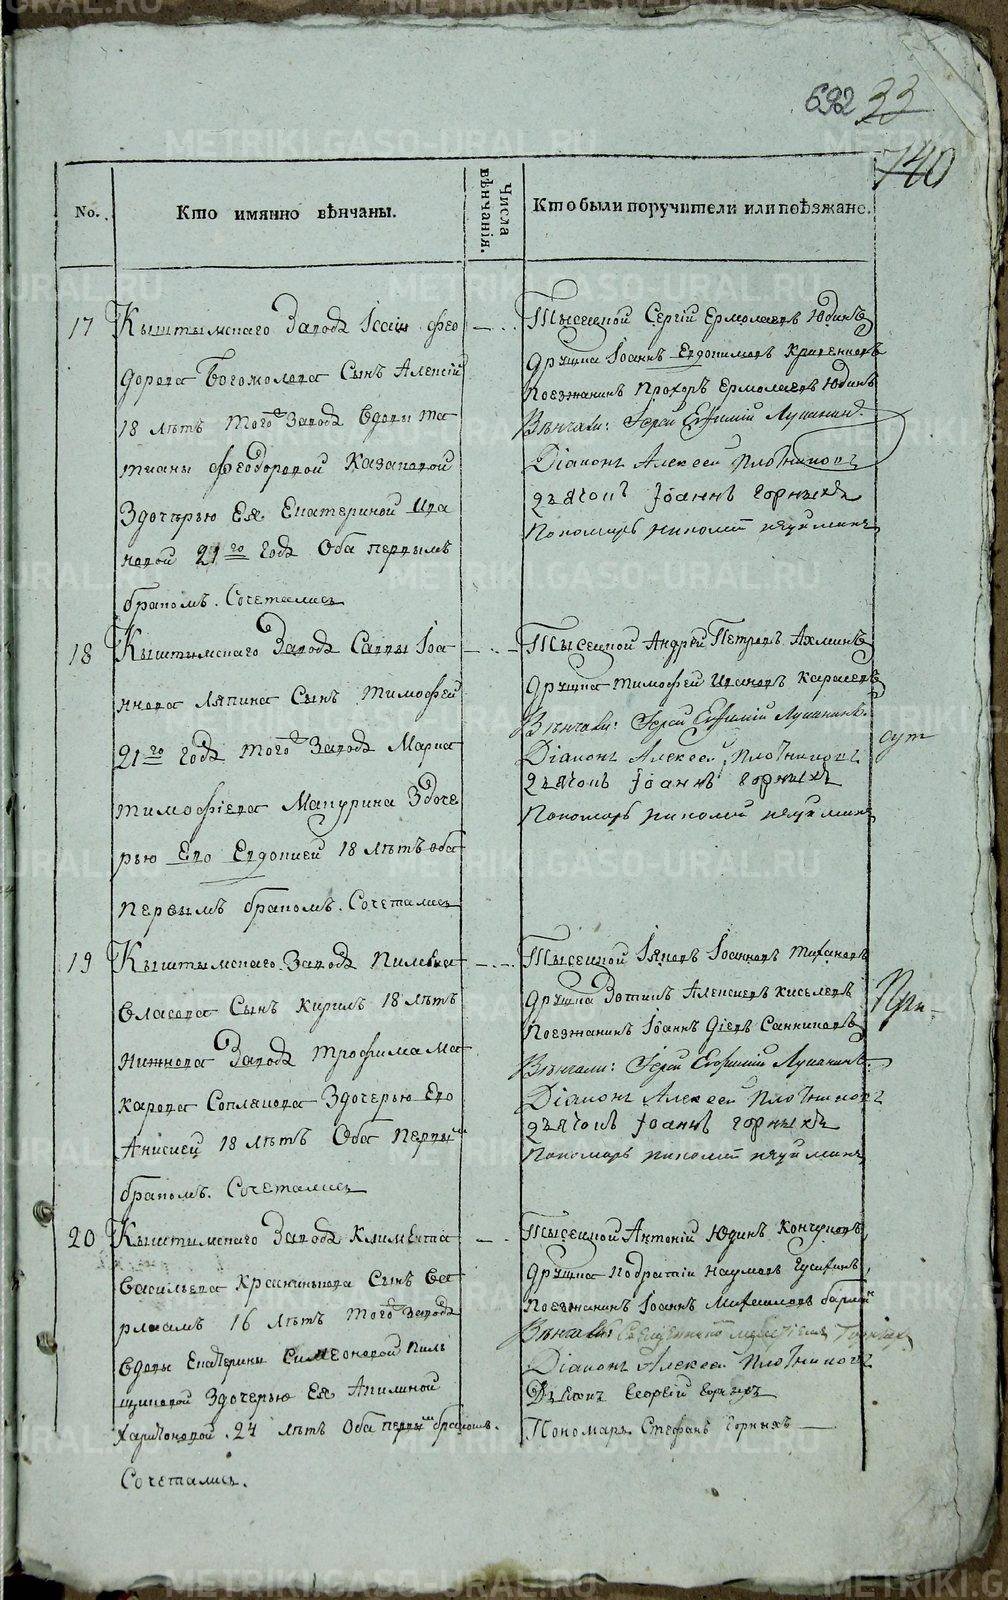 692 33
740
No.
Кто имянно вѣнчаны.
Числа вѣнчанія.
Кто были поручители или поѣзжане.
17
Кыштымскаго Завода Ісаіи Фео
дорова Богомолова Сынъ Алексій
18 лѣтъ того Завода Вдовы Та
тианы Феодоровой Казаковой
Здочерью Ея Екатериной Ива
новой 21го года Оба первымъ
бракомъ. Сочетались
Тысецкой Сергій Ермолаевъ Юдинъ
Дружка Іоаннъ Евдокимовъ
Поезжанинъ Прохоръ Ермолаевъ Юдинъ
Вѣнчали: Іерей Евфимій Лупанинъ.
Діаконъ Алексѣй Плотниковъ
Дьячокъ Іоаннъ Горныхъ
Пономарь Николай
18
Кыштымскаго Завода Саввы Іоа
ннова Ляпина Сынъ Тимофей
21го года того Завода Марка
Тимофіева Мапурина Здоче
рью Его Евдокией 18 лѣтъ оба
первымъ бракомъ. Сочетались
Тысецкой Андрей Петровъ Ахминъ
Дружка Тимофей Ивановъ Карасевъ
Вѣнчали: Іерей Евфимій Лупанинъ.
Діаконъ Алексѣй Плотниковъ
Дьячокъ Іоаннъ Горныхъ
Пономарь Николай
19
Кыштымскаго Завода
Власова Сынъ Кирилъ 18 лѣтъ
Нижнова Завода Трофима Ма
карова Соплякова Здочерью Его
Анисией 18 лѣтъ Оба первым
бракомъ. Сочетались
Тысецкой Іяковъ Іоанновъ Тихановъ
Дружка Зотикъ Алексиевъ Киселевъ
Поезжанинъ Іоаннъ Санниковъ
Вѣнчали: Іерей Евфимій Лупанинъ.
Діаконъ Алексѣй Плотниковъ
Дьячокъ Іоаннъ Горныхъ
Пономарь Николай
20
Кыштымскаго Завода Климента
Васильева Сынъ Ва
рлаамъ 16 лѣтъ того Завода
Вдовы Екатерины Симеоновой Пиль
щиковой Здочерью Ея Акилиной
Харитоновой 24 лѣтъ Оба первым бракомъ.
Сочетались.
Тысецкой Антоній Юдинъ
Дружка Кодратій Наумовъ Гусихинъ,
Поезжанинъ Іоаннъ Михаиловъ
Вѣнчали: Священникъ
Діаконъ Алексѣй Плотниковъ
Дьячокъ Георгій Горныхъ
Пономарь Стефанъ Горныхъ
METRIKI.GASO-URAL.RU